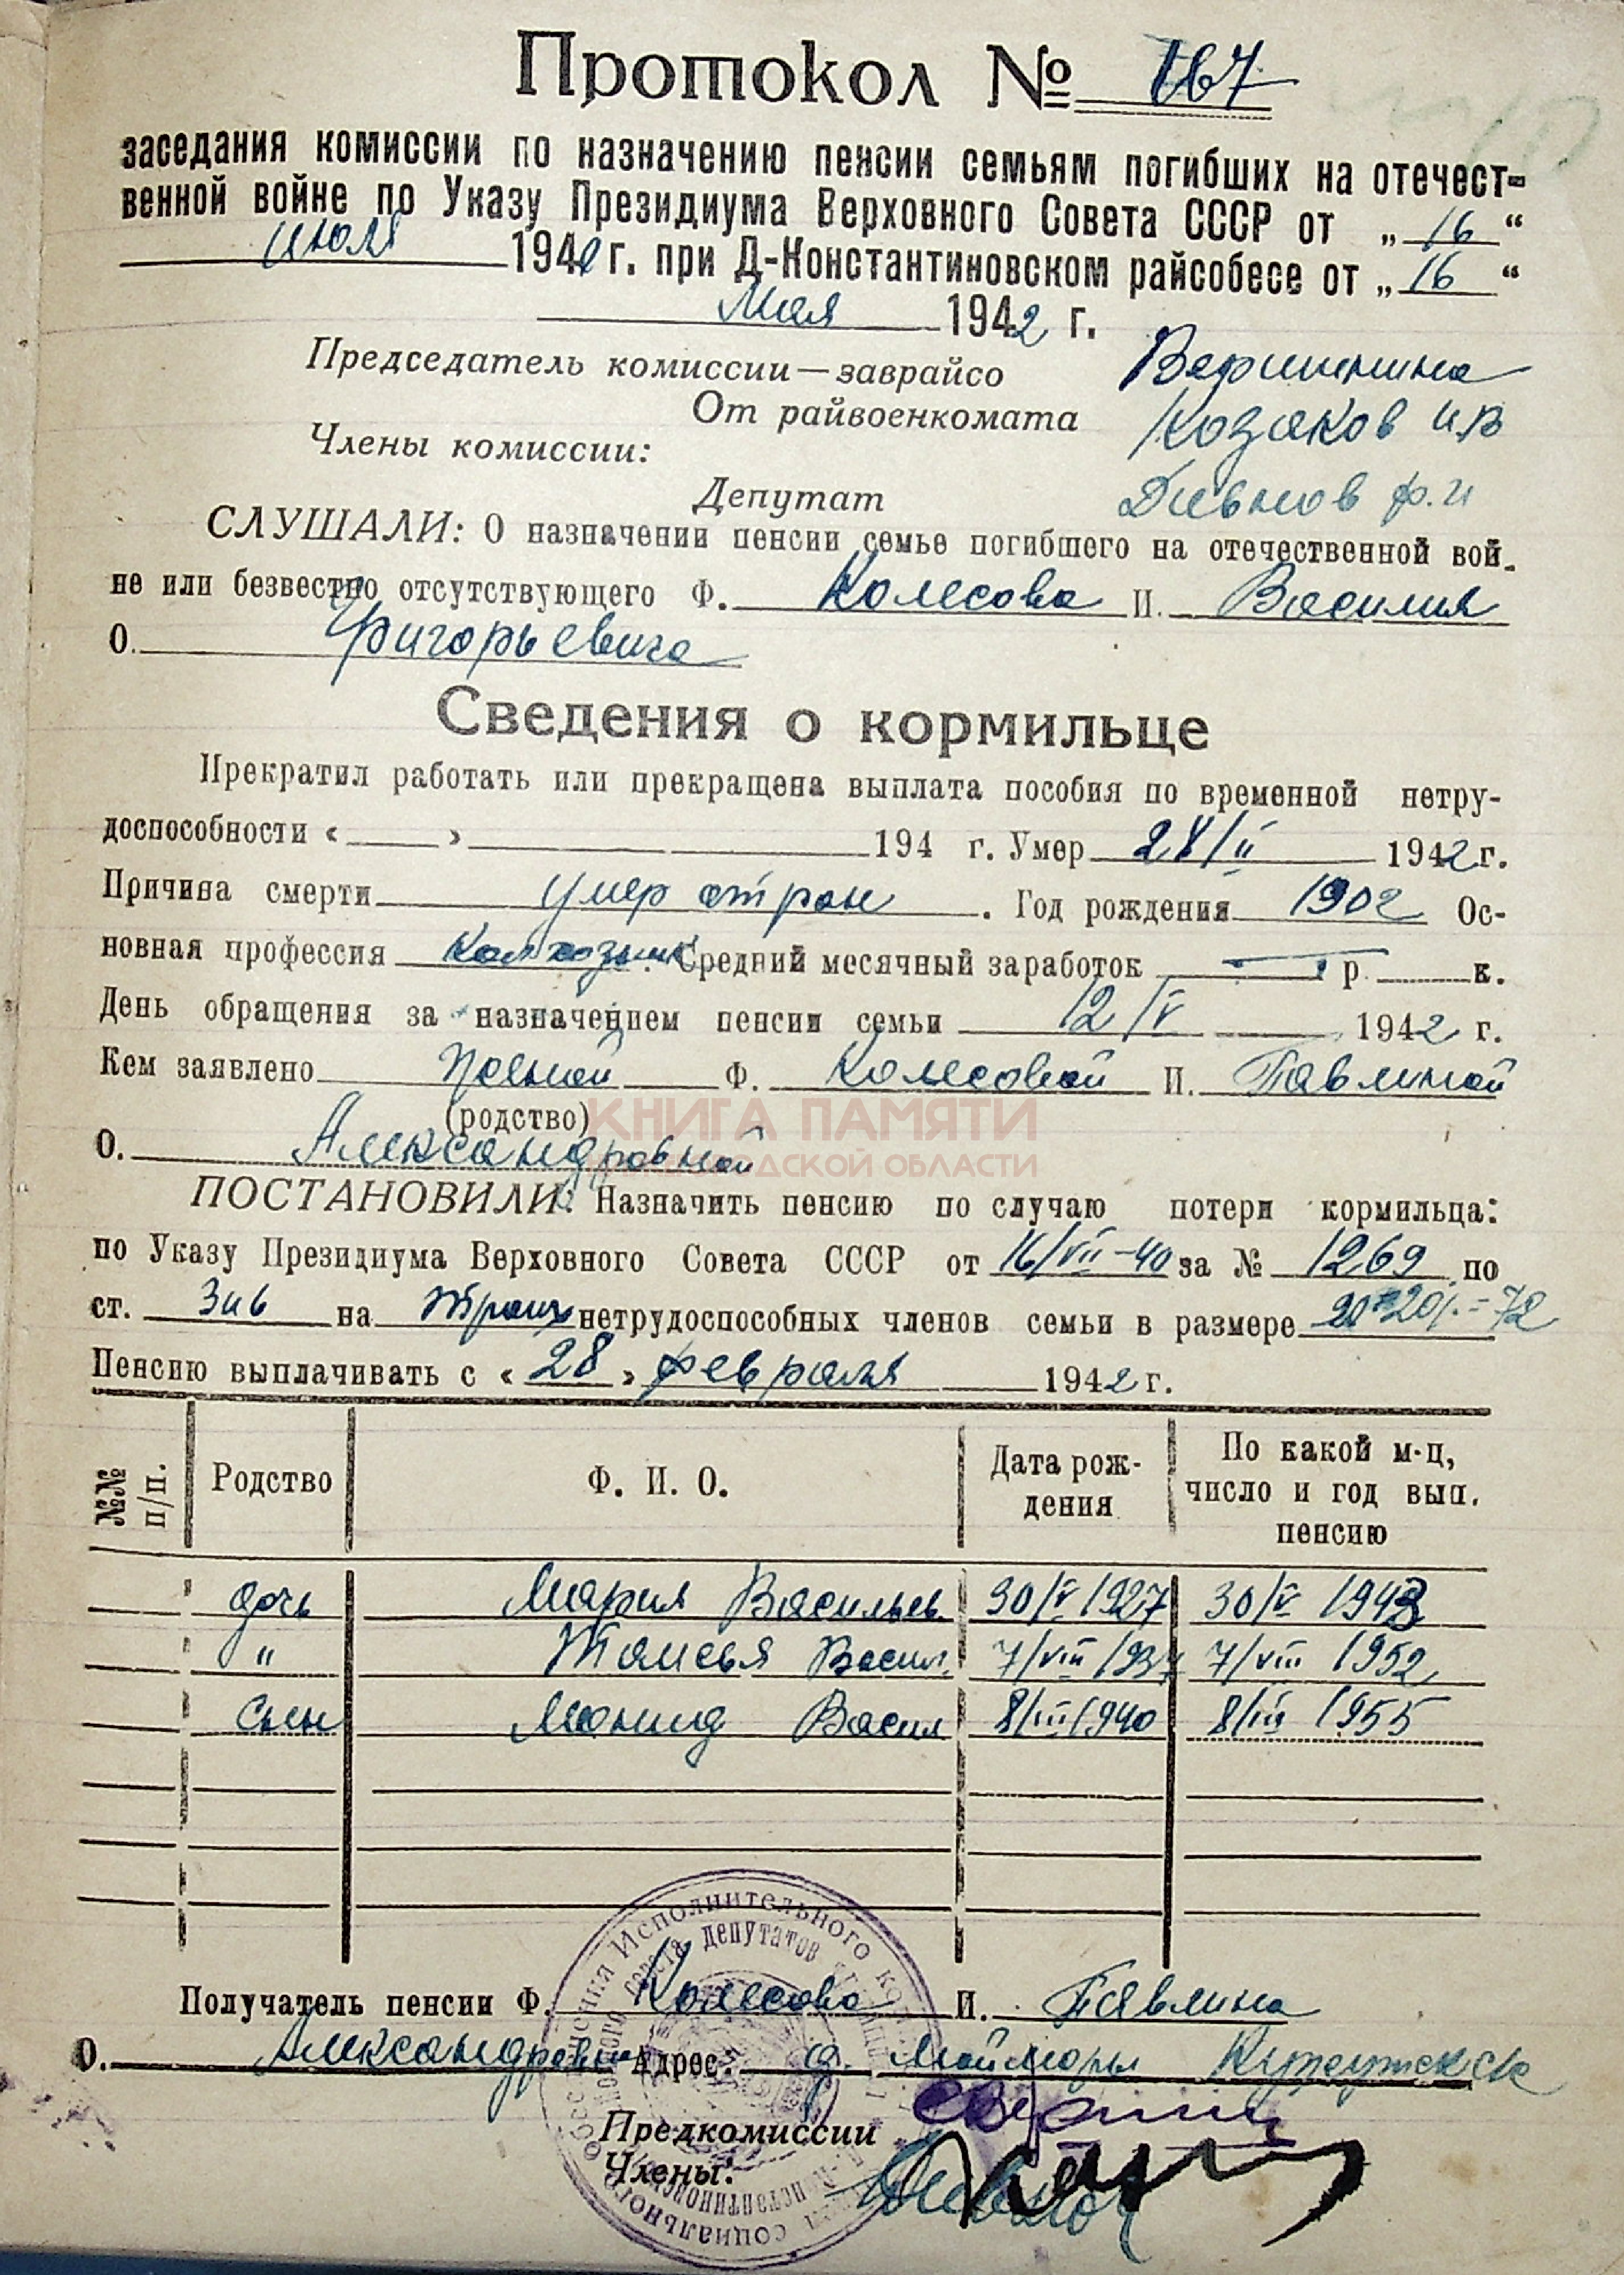 Протокол № 167
заседания комиссии по назначению пенсии семьям погибших на отечест-
венной войне по Указу Президиума Верховного Совета СССР от „ 16 “
июля 1940 г. при Д-Константиновском райсобесе от „ 16 “
Мая 1942 г.
Председатель комиссии—заврайсо Вершинина
От райвоенкомата Козаков И В
Члены комиссии:
Депутат Дивнов Ф. И
СЛУШАЛИ: О назначении пенсии семье погибшего на отечественной вой-
не или безвестно отсутствующего Ф. Колесова И. Василия
О. Григорьевича
Сведения о кормильце
Прекратил работать или прекращена выплата пособия по временной нетру-
доспособности « » 194 г. Умер 28/II 1942 г.
Причина смерти умер от ран. Год рождения 1902 Ос-
новная профессия Колхозник. Средний месячный заработок р. к.
День обращения за назначением пенсии семьи 12/V 1942 г.
Кем заявлено Ф. Колесовой И. Павлиной
(родство)
О. Александровной
КНИГА ПАМЯТИ
НИЖЕГОРОДСКОЙ ОБЛАСТИ
ПОСТАНОВИЛИ: Назначить пенсию по случаю потери кормильца:
по Указу Президиума Верховного Совета СССР от 16/VII-40 за № 1269 по
ст. 3 и 6 на троих нетрудоспособных членов семьи в размере = 72
Пенсию выплачивать с « 28 » февраля 1942 г.
№№ п/п. Родство Ф. И. О. Дата рож-дения По какой м-ц, число и год вып. пенсию
дочь Мария Васильев. 30/V 1927 30/V 1943
" Васил. 7/VIII 1937 7/VIII 1952
Сын Леонид Васил 8/III 1940 8/III 1955
Получатель пенсии Ф. Колесова И. Павлина
О. Александровна Адрес: д. Майморы
Предкомиссии
Члены: